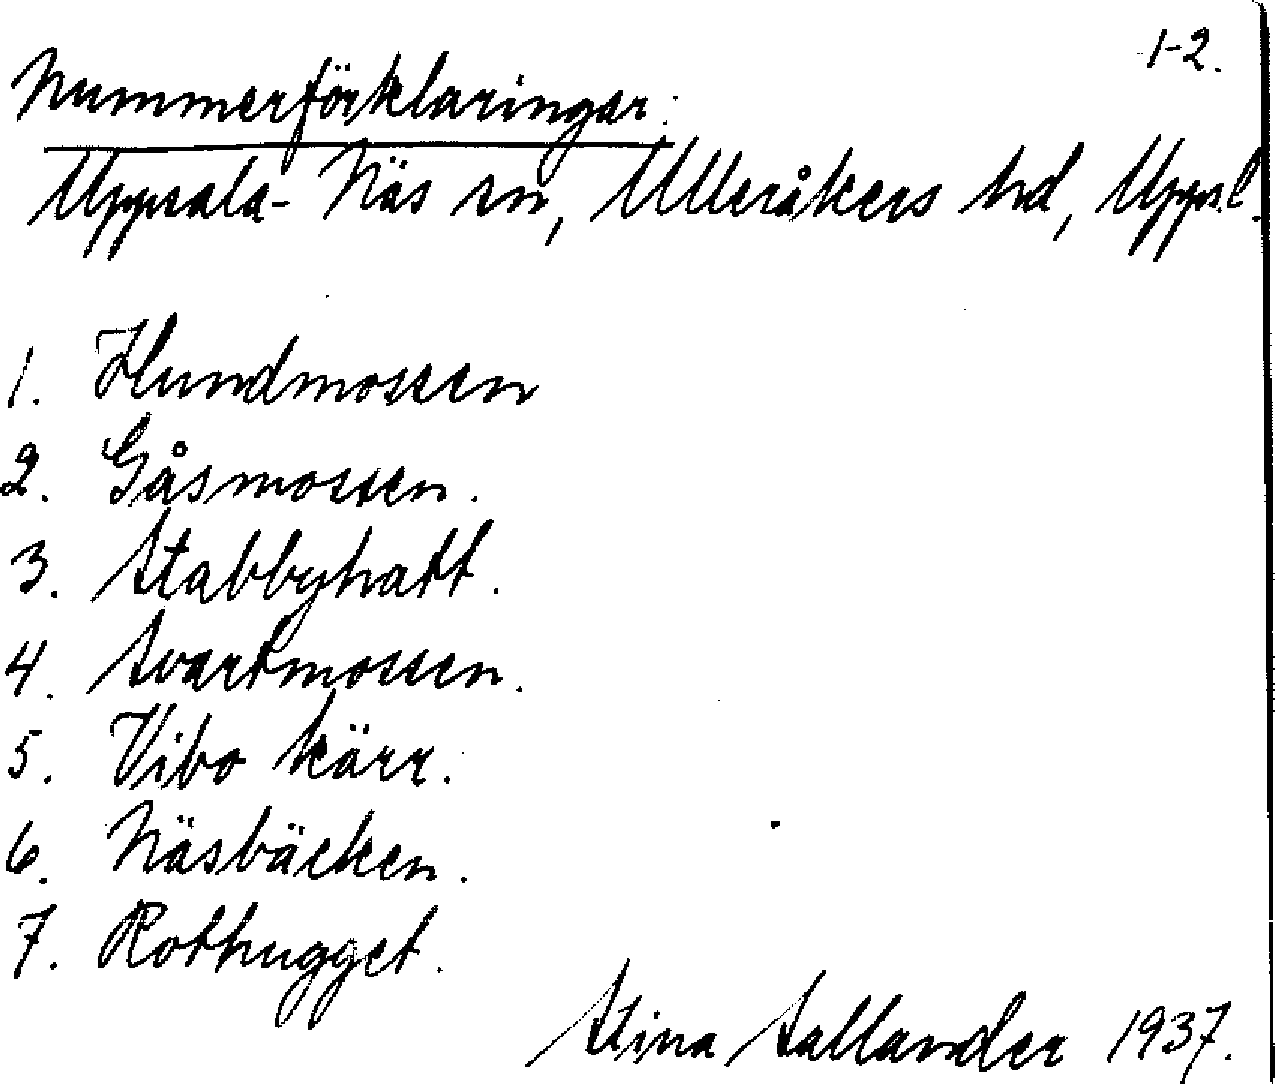 1-2.
Nummerförklaringar:
Uppsala-Näs sn, Ulleråkers hd, Uppl.
1. Hundmossen
2. Gåsmossen.
3. Stabbyhatt.
4. Svartmossen.
5. Vibo kärr.
6. Näsbäcken.
7. Rothugget.
Stina Sallander 1937.